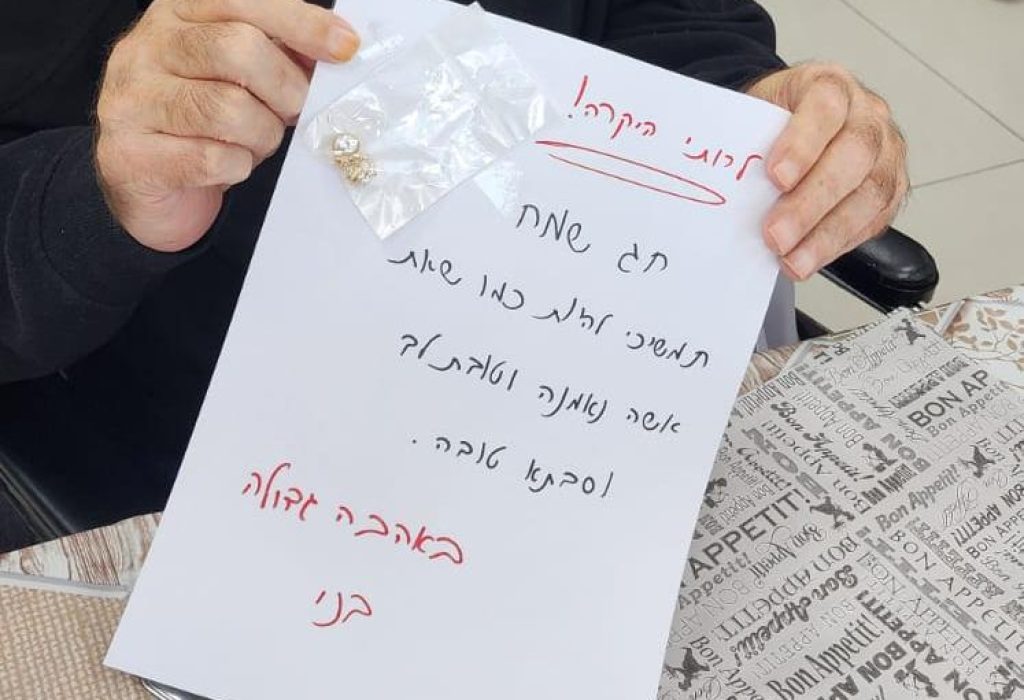 לרותי היקרה!
חג שמח
תמשיכי להיות כמו שאת
אשה נאמנה וטובת לב
וסבתא טובה.
באהבה גדולה
בני
BON APPETIT
Bon Appetit!
BON AP
APPETIT!
Bon Appétit!
BON APPETIT